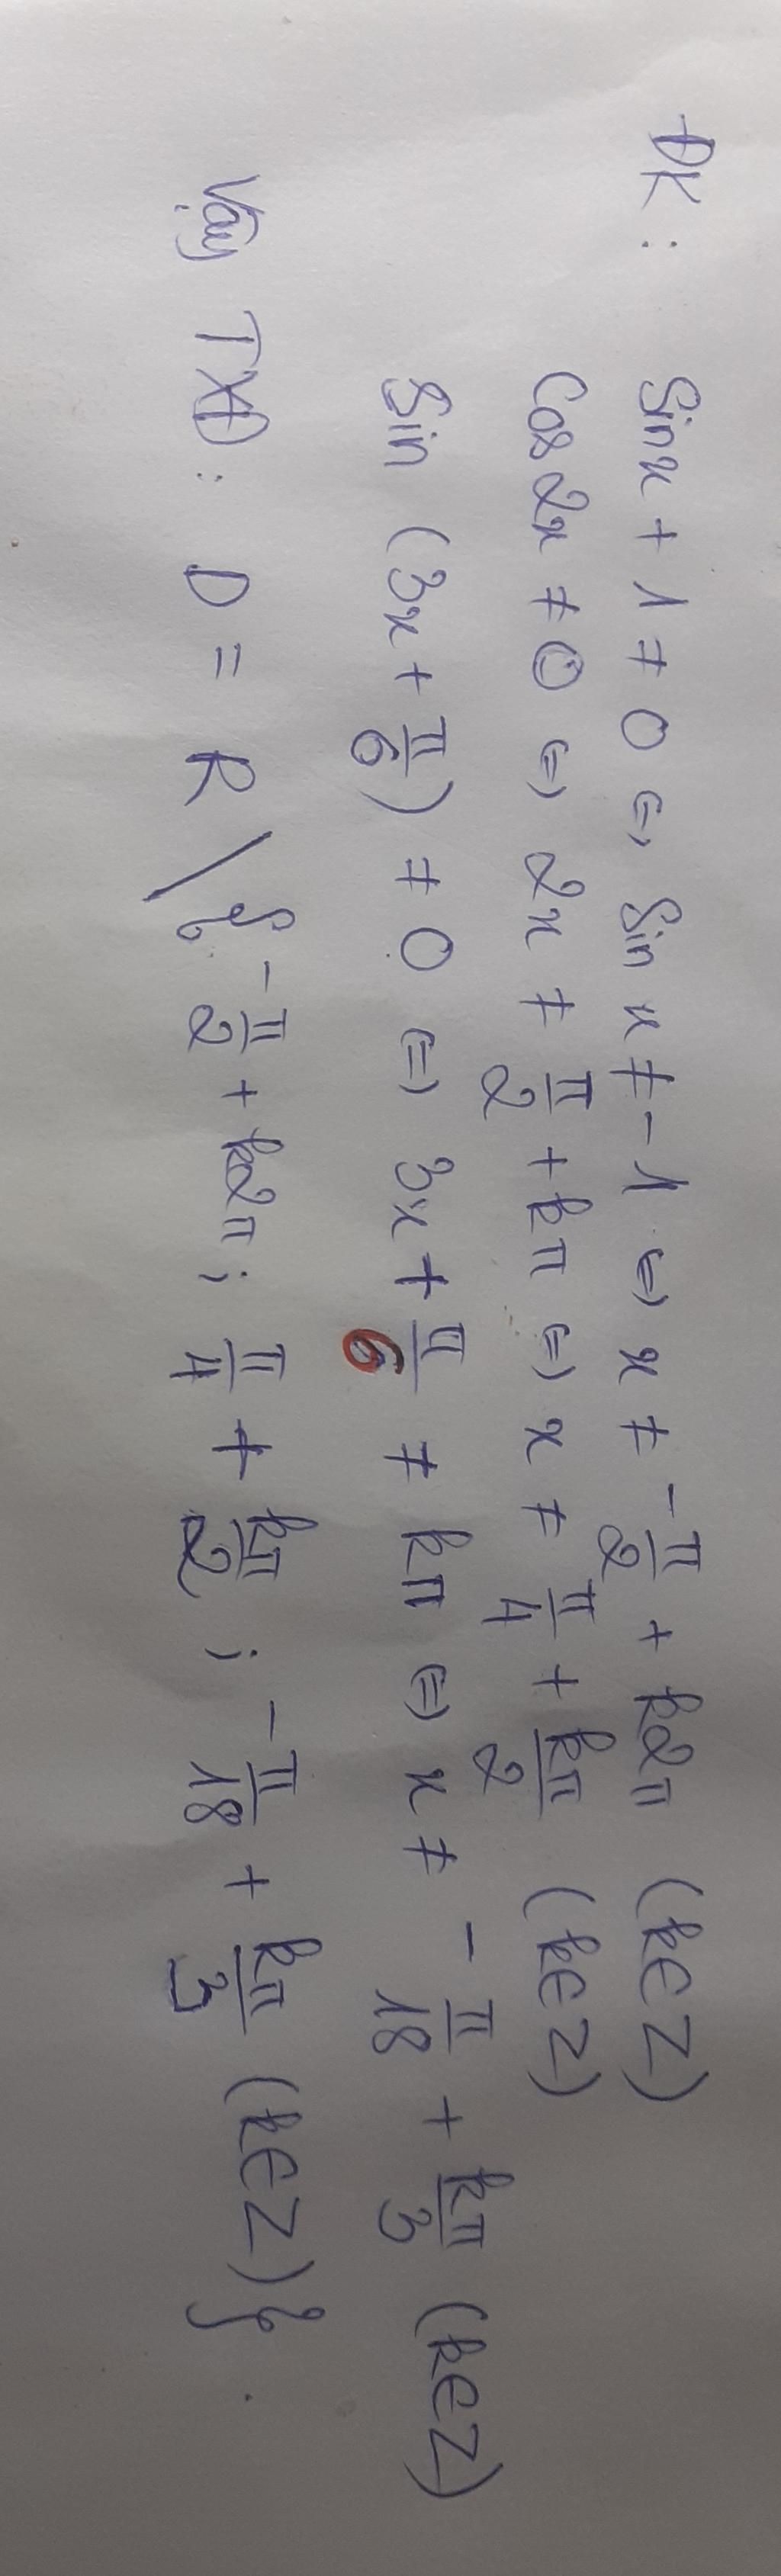 ĐK: Sinx + 1 ≠ 0 ⇔ Sin x ≠ -1 ⇔ x ≠ -π/2 + k2π (k∈Z)
Cos2x ≠ 0 ⇔ 2x ≠ π/2 + kπ ⇔ x ≠ π/4 + kπ/2 (k∈Z)
Sin (3x + π/6) ≠ 0 ⇔ 3x + π/6 ≠ kπ ⇔ x ≠ -π/18 + kπ/3 (k∈Z)
Vậy TXĐ: D = R \ { -π/2 + k2π; π/4 + kπ/2; -π/18 + kπ/3 (k∈Z)}.